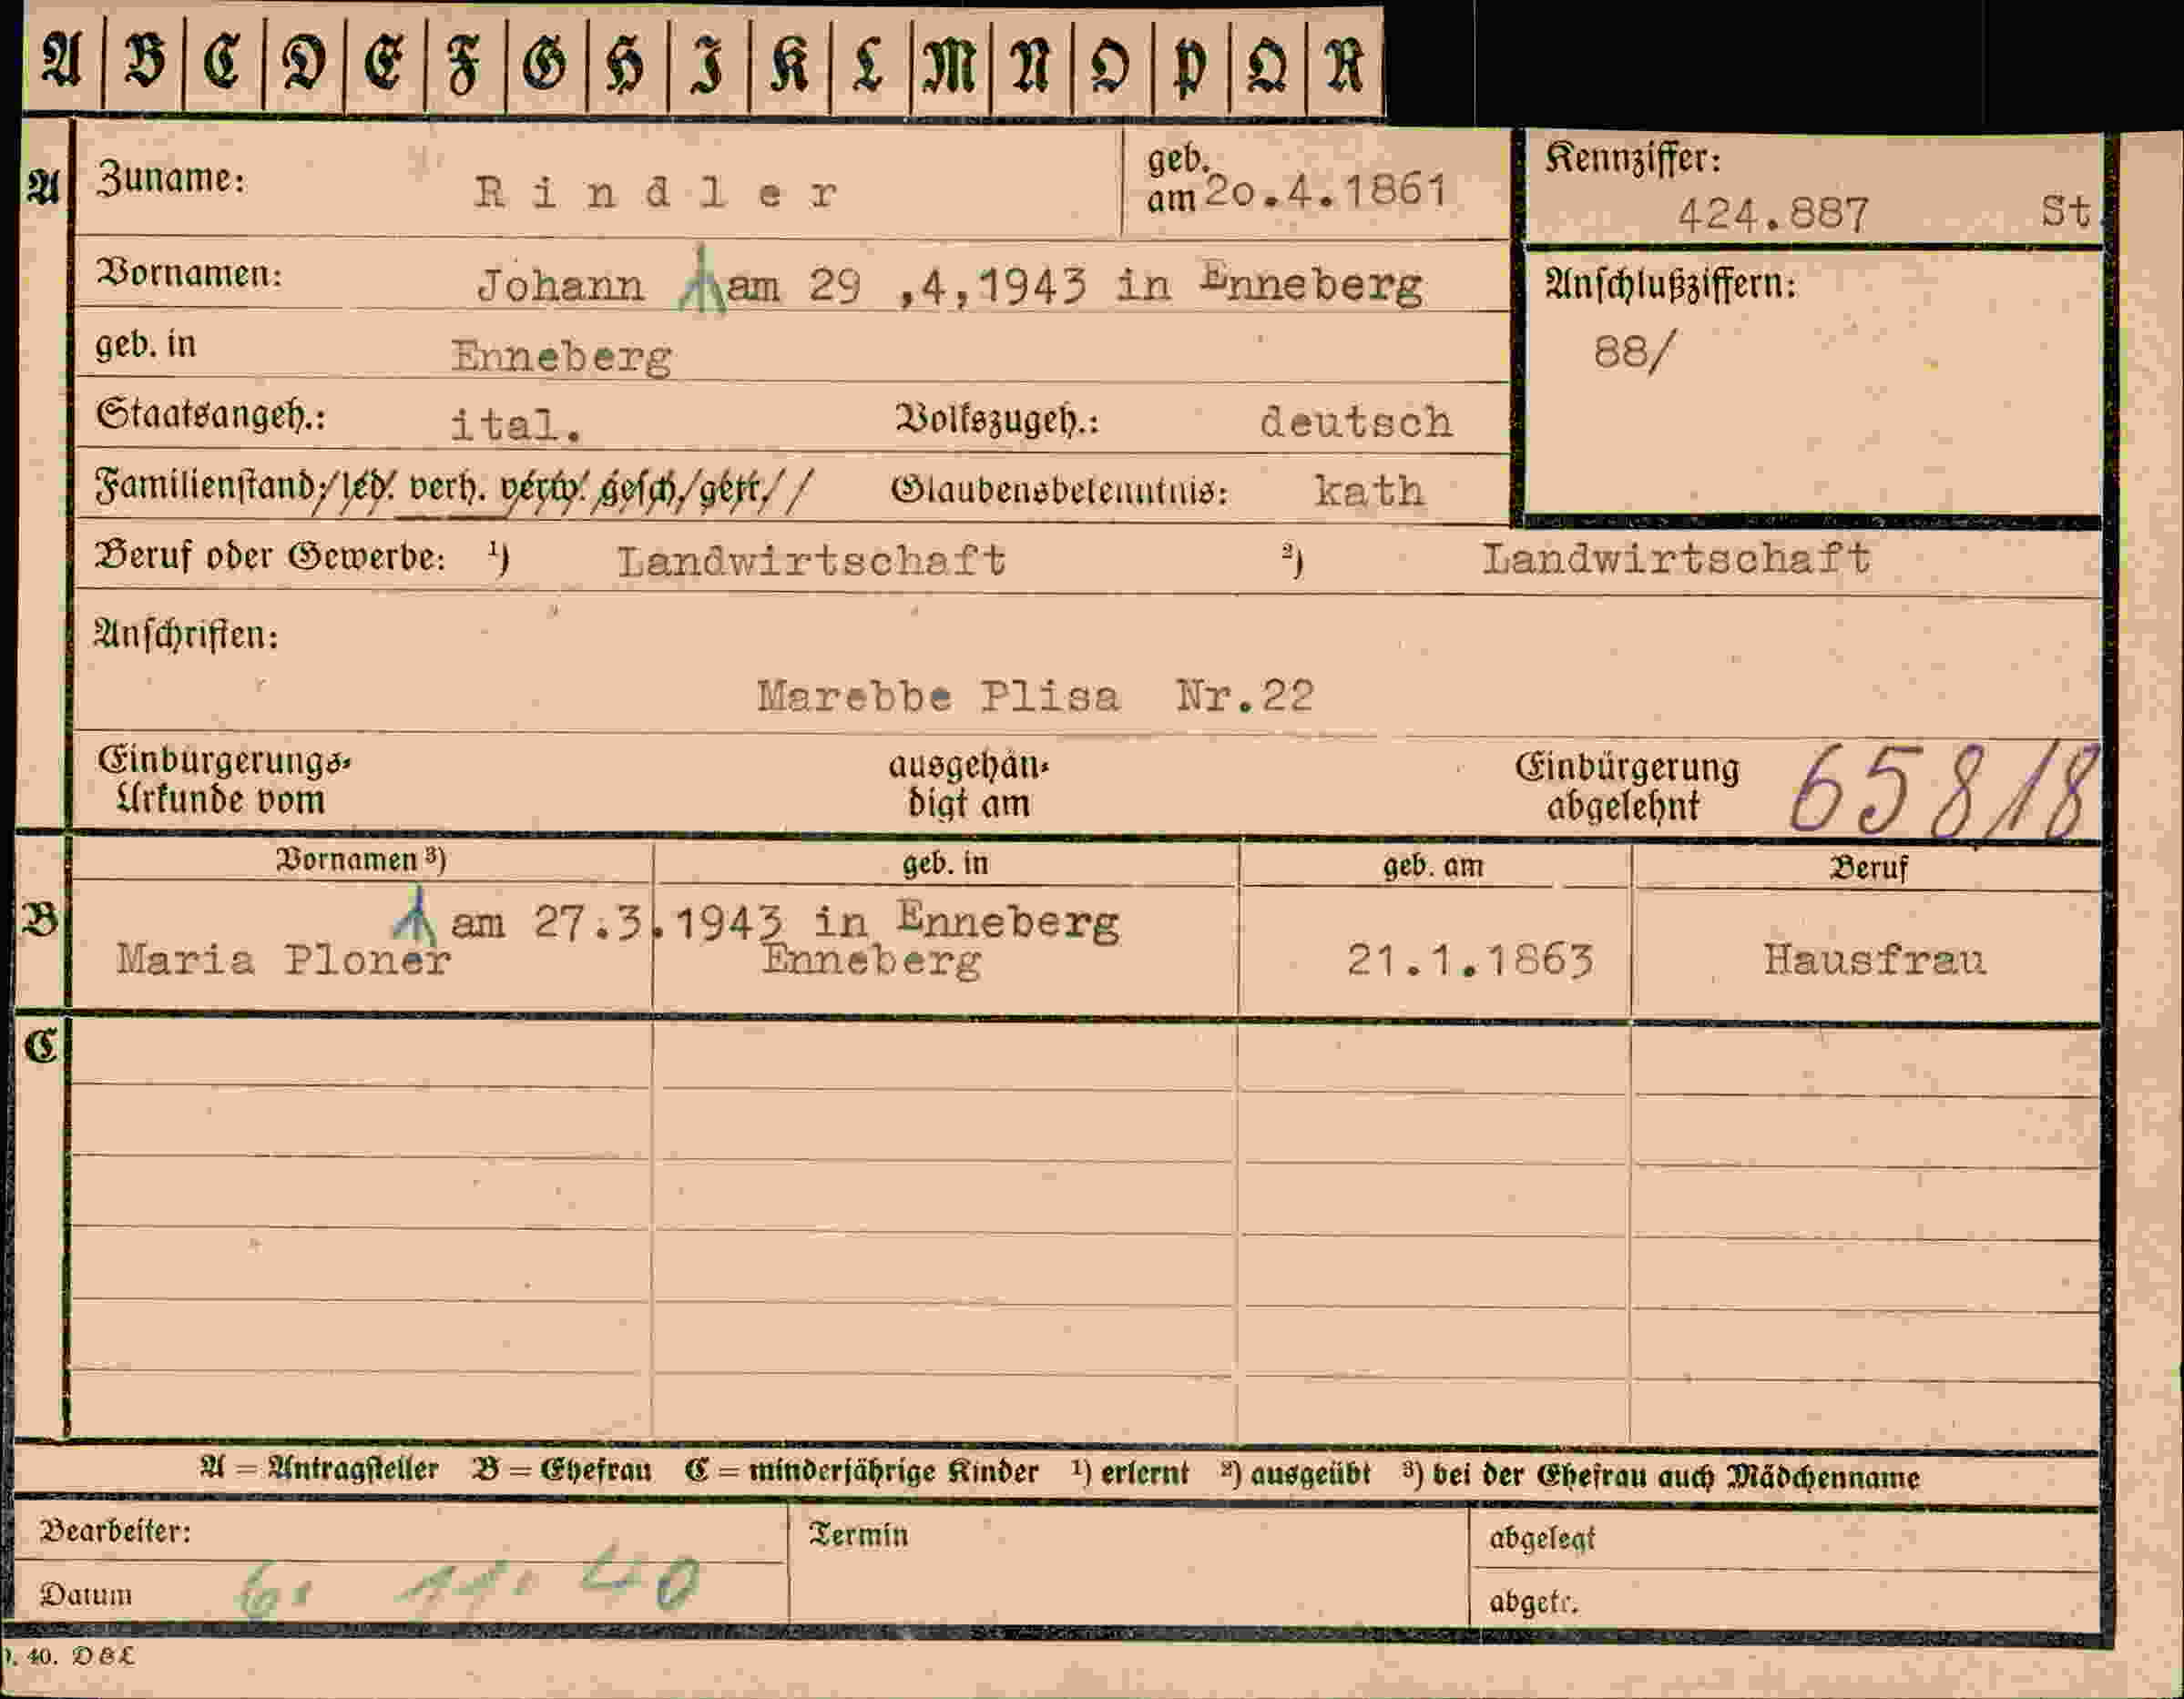 A B C D E F G H I K L M N O P Q R
A Zuname: Rindler geb. am 20.4.1861 Kennziffer: 424.887 St
Vornamen: Johann am 29 ,4,1943 in Enneberg Anschlußziffern:
88/
geb. in Enneberg
Staatsangeh.: ital. Volkszugeh.: deutsch
Familienstand: led. verh. verw. gesch. getr. Glaubensbekenntnis: kath
Beruf oder Gewerbe: ¹) Landwirtschaft ²) Landwirtschaft
Anschriften:
Marebbe Plisa Nr.22
Einbürgerungs- ausgehän- Einbürgerung 65818
Urkunde vom digt am abgelehnt
Vornamen ³) geb. in geb. am Beruf
B am 27.3.1943 in Enneberg
Maria Ploner Enneberg 21.1.1863 Hausfrau
C
A = Antragsteller B = Ehefrau C = minderjährige Kinder ¹) erlernt ²) ausgeübt ³) bei der Ehefrau auch Mädchenname
Bearbeiter: Termin abgelegt
Datum 6. 11. 40 abgetr.
40. DBL